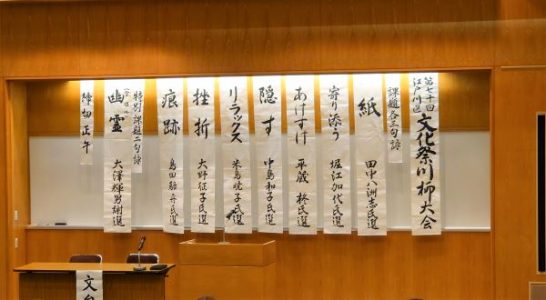 第七十回
江戸川区
文化祭川柳大会
課題各二句詠
紙
田中八洲志氏選
寄り添う
堀江加代氏選
あけすけ
平蔵 柊氏選
隠す
中島和子氏選
リラックス
米島暁子氏選
挫折
大野征子氏選
痕跡
島田駱舟氏選
特別課題二句詠
幽霊
大澤輝男謝選
締切正午
文台